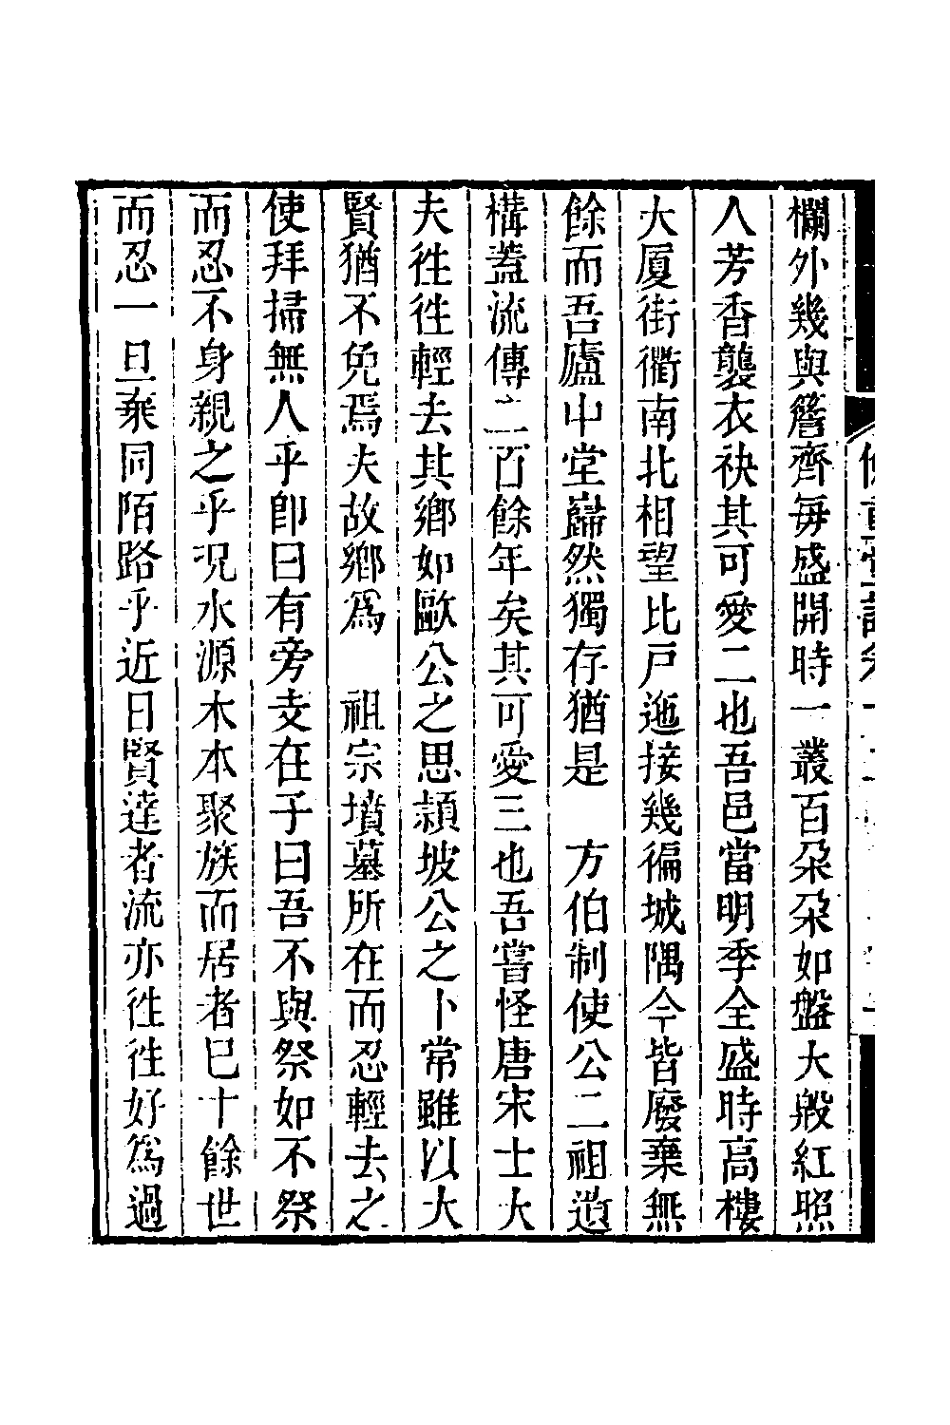 欄外幾與簷齊每盛開時一叢百朵朵如盤大殷紅照
人芳香襲衣袂其可愛二也吾邑當明季全盛時高樓
大厦街衢南北相望比戸迤接幾徧城隅今皆廢棄無
餘而吾廬中堂巋然獨存猶是　方伯制使公二祖造
構蓋流傳二百餘年矣其可愛三也吾嘗怪唐宋士大
夫徃徃輕去其鄉如歐公之思潁坡公之卜常雖以大
賢猶不免焉夫故鄉爲　祖宗墳墓所在而忍輕去之
使拜掃無人乎卽曰有旁支在子曰吾不與祭如不祭
而忍不身親之乎况水源木本聚族而居者巳十餘世
而忍一旦棄同陌路乎近日賢達者流亦徃徃好爲過